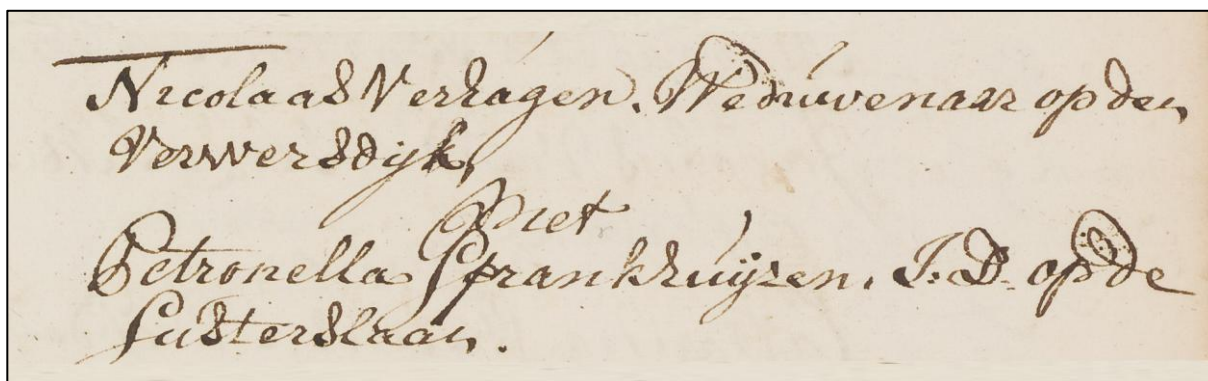 Nicolaas Verhagen. Weduwenaar op den
Verwersdijk,
met
Petronella Sprankhuijzen. J.D. op de
Susterslaan.